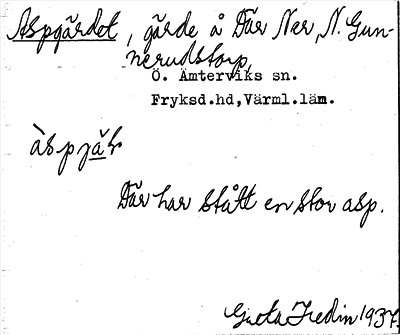 Aspgärdet, gärde å Där Ner, N. Gun-
nerudstorp,
Ö. Ämterviks sn.
Fryksd.hd,Värml.län.
àspjäḷ
Där har stått en stor asp.
Greta Hedin 1937.